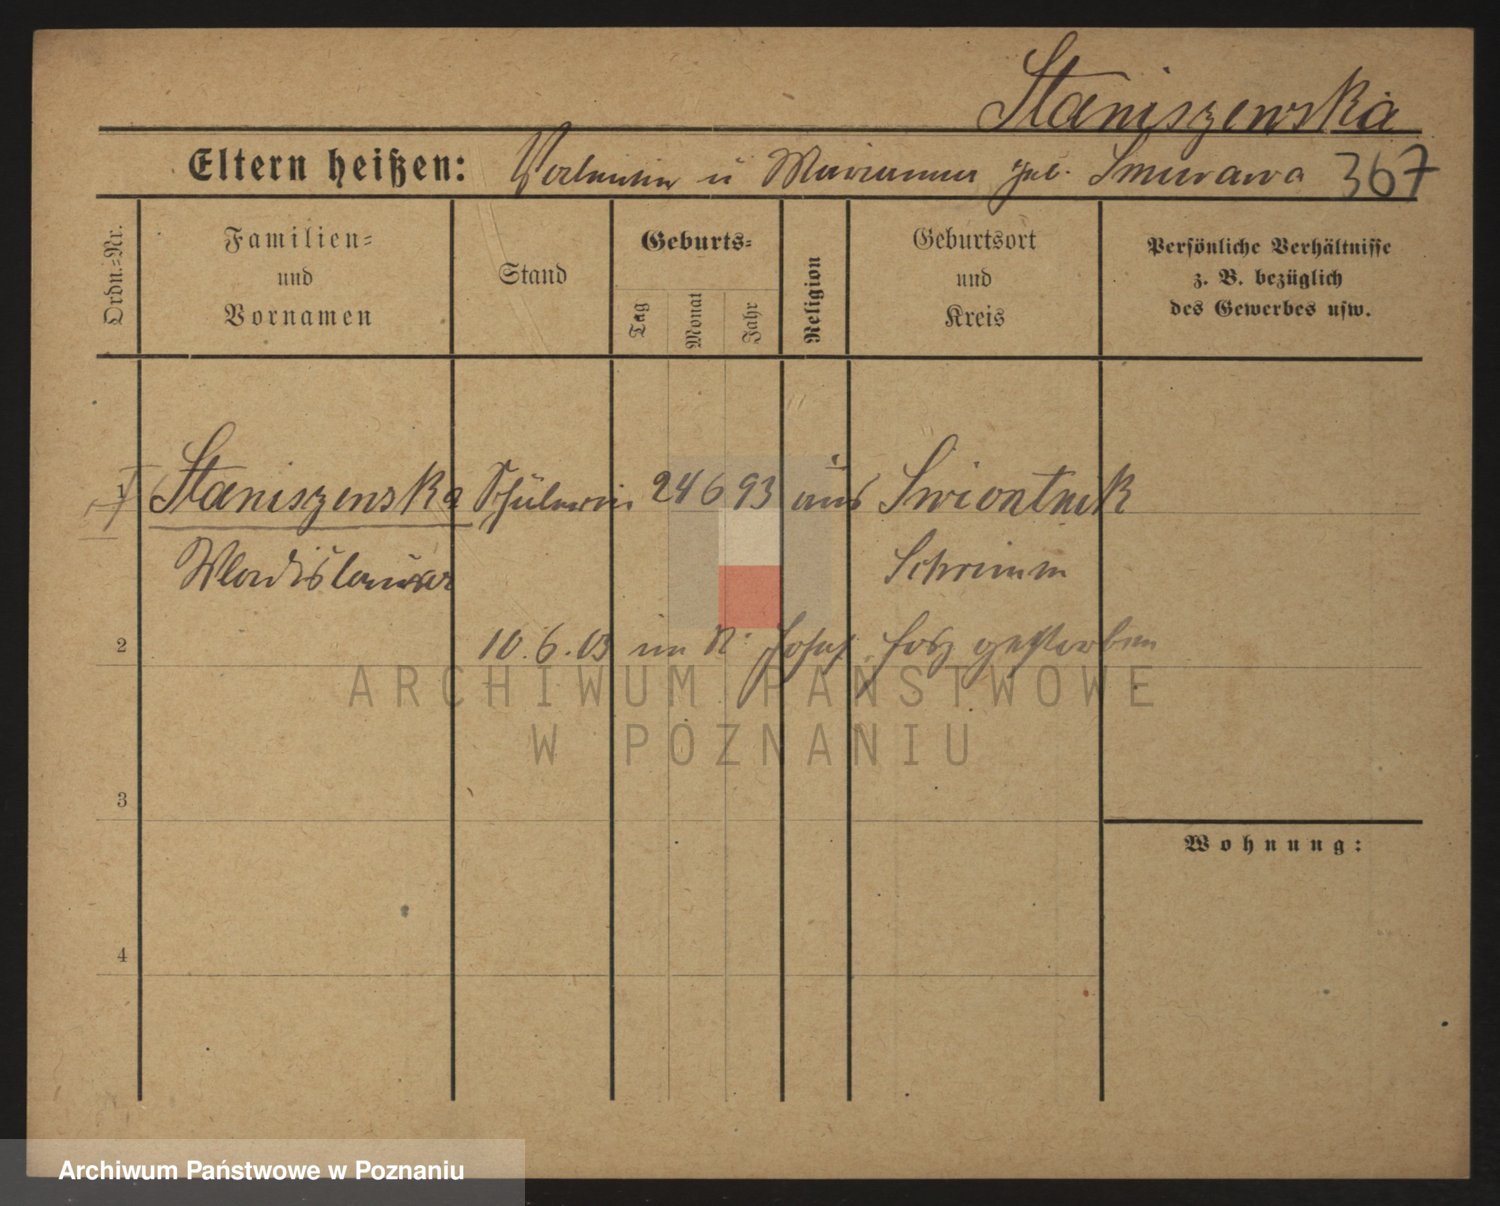 Staniszewska
Eltern heißen: Valentin u Marianna geb. Smurawa 367
Ordn.-Nr.
Familien-
und
Vornamen
Stand
Geburts-
Tag
Monat
Jahr
Religion
Geburtsort
und
Kreis
Persönliche Verhältnisse
z. B. bezüglich
des Gewerbes usw.
1 Staniszewska Schülerin 24 6 93 aus Swiontnik
Wladislawa Schrimm
2
10.6.03 im St. Josef gestorben
ARCHIWUM PAŃSTWOWE
W POZNANIU
3
Wohnung:
4
Archiwum Państwowe w Poznaniu